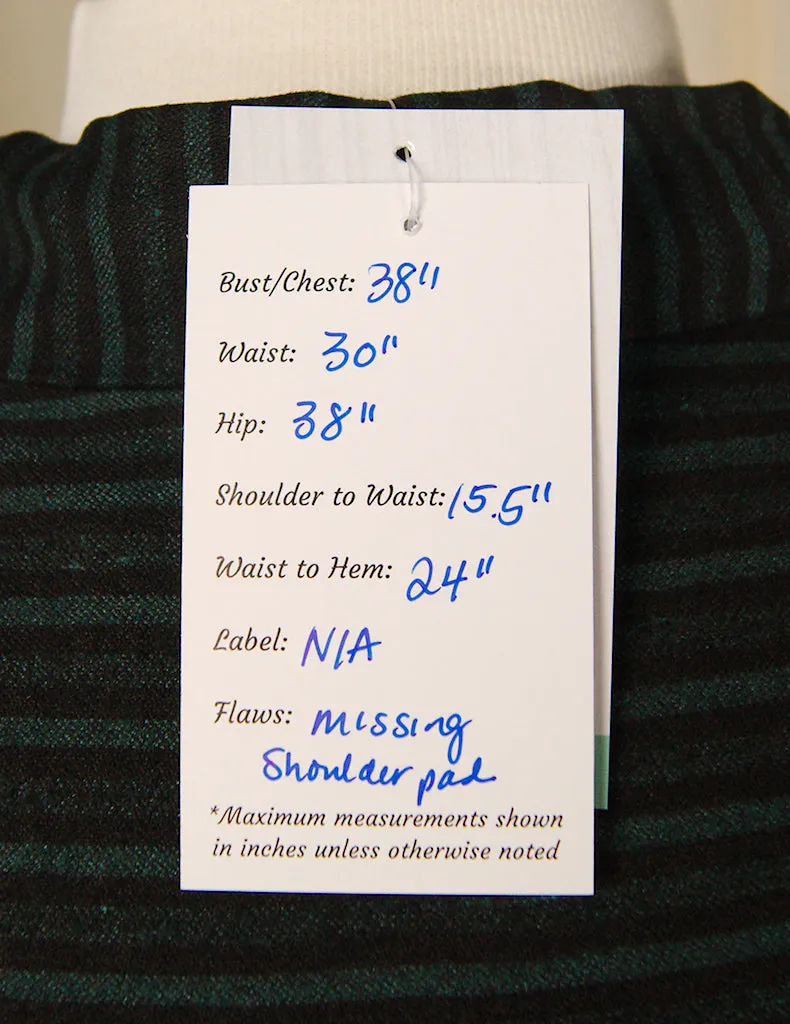 Bust/Chest: 38"
Waist: 30"
Hip: 38"
Shoulder to Waist: 15.5"
Waist to Hem: 24"
Label: N/A
Flaws: missing
Shoulder pad
*Maximum measurements shown
in inches unless otherwise noted